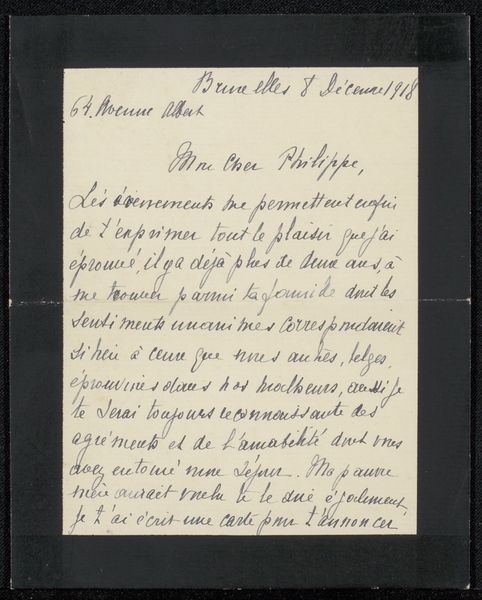 Bruxelles 8 Décembre 1918
64. Avenue Albert
Mon cher Philippe,
Les évènements me permettent enfin
de t'exprimer tout le plaisir que j'ai
éprouvé, il y a déjà plus de deux ans, à
me trouver parmi ta famille dont les
sentiments unanimes correspondaient
si bien à ceux que nous autres, belges,
éprouvions dans nos malheurs, aussi je
te serai toujours reconnaissante des
agréments et de l'amabilité dont vous
avez entouré mon séjour. Ma pauvre
mère aurait voulu te le dire également,
je t'ai écrit une carte pour t'annoncer